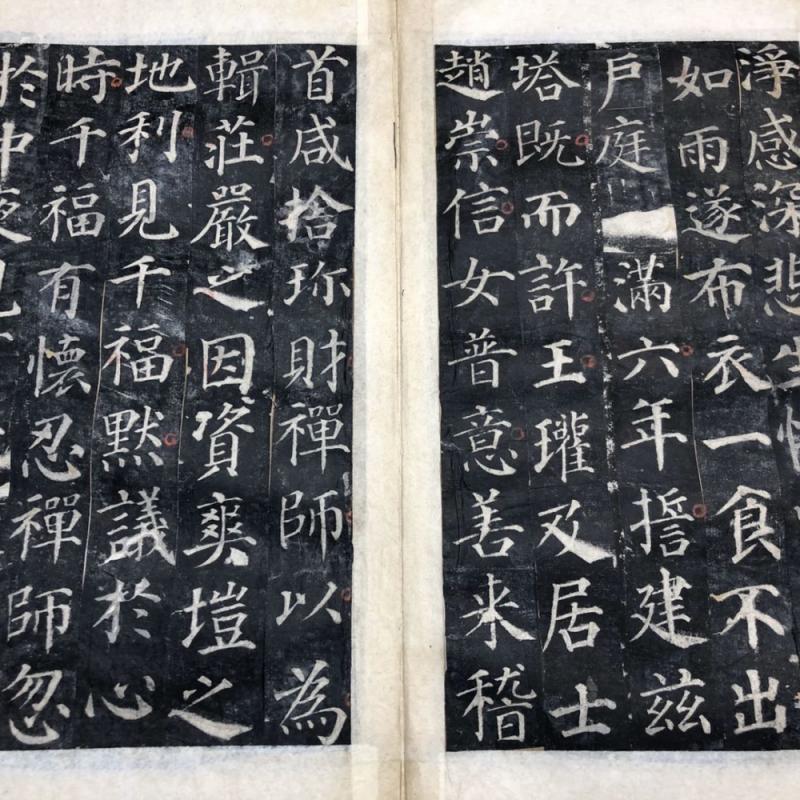 淨感深悲生悟
如雨遂布衣一食不出
戶庭滿六年誓建茲
塔既而許王瓘及居士
趙崇信女普意善來稽
首咸捨珍財禪師以為
輯莊嚴之因資爽塏之
地利見千福默議於心
時千福有懷忍禪師忽
於中夜見